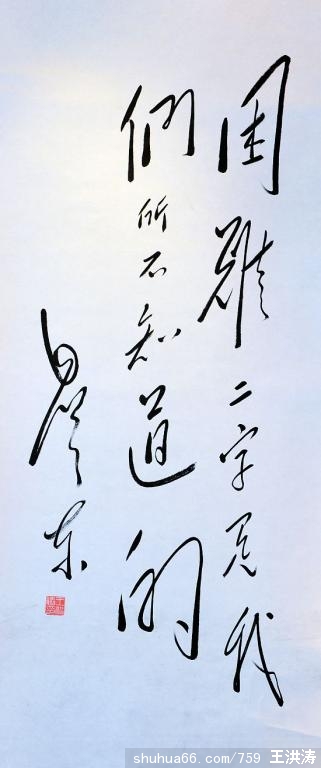 困難二字是我
們所不知道的
东
shuhua66.com/759 王洪涛